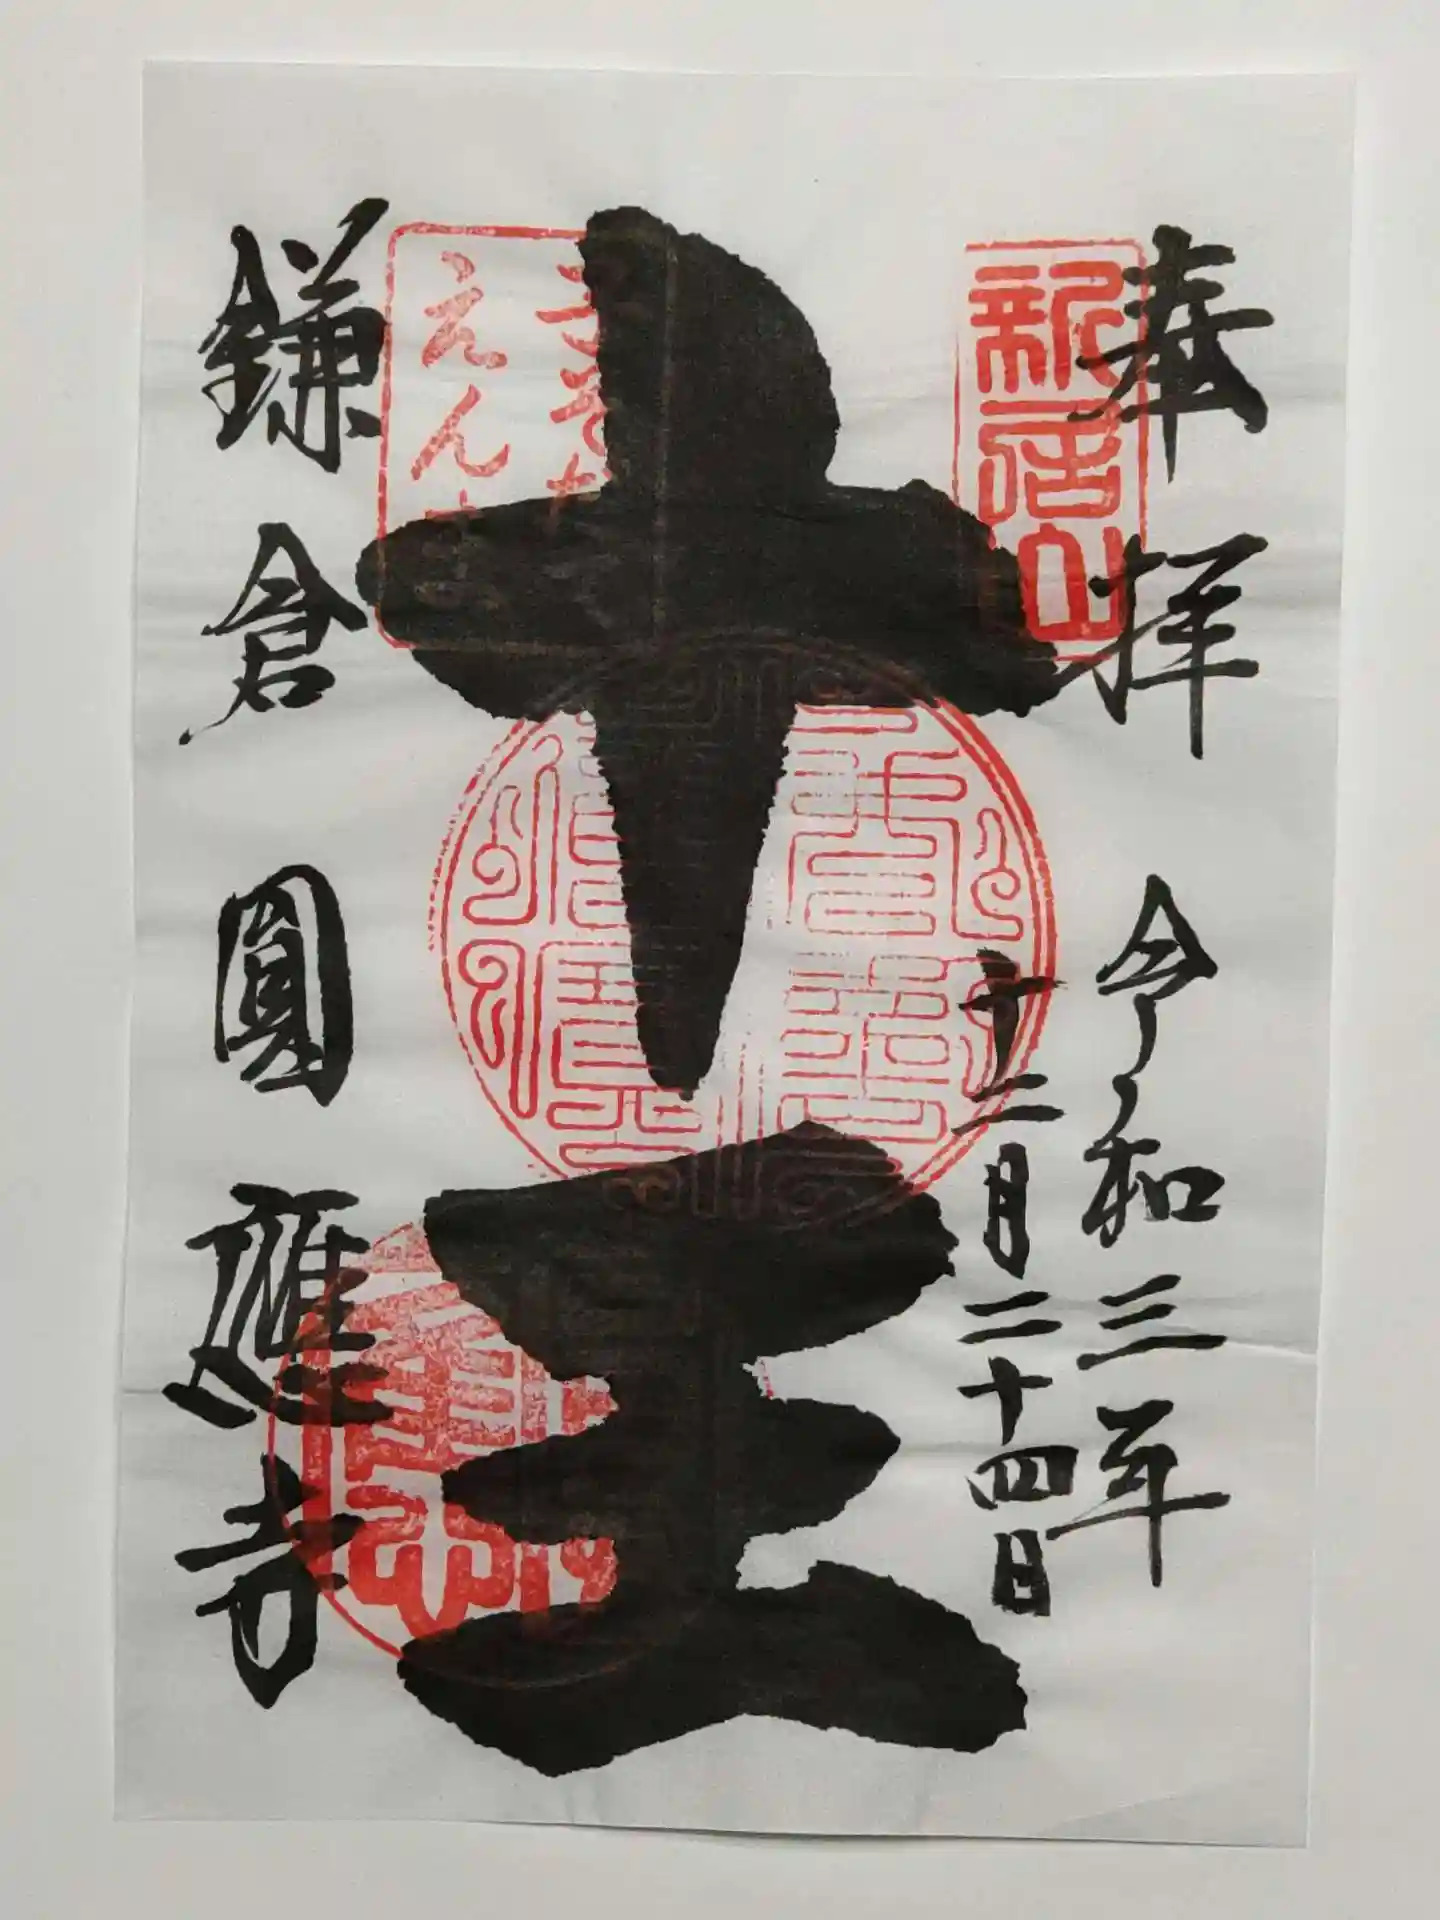 奉拝
新居山
令和三年
十二月二十四日
十王
えん
鎌倉圓應寺